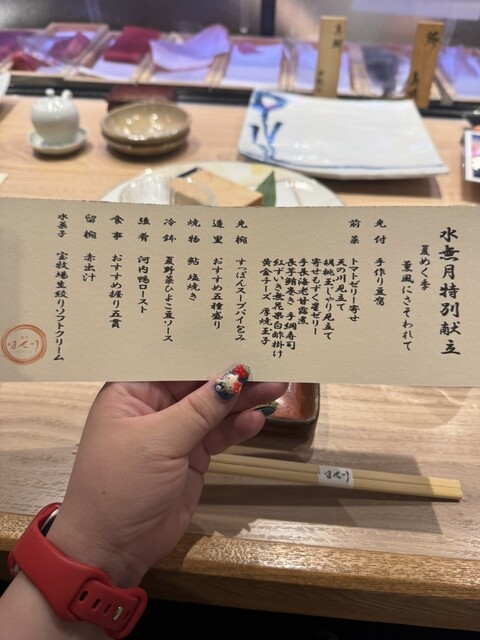 水無月特別献立
夏めく季
薫風にさそわれて
先付 手作り豆腐
前菜 トマトゼリー寄せ
天の川見立て
胡桃玉じゃり見立て
寄せもずく星ゼリー
手長海老甘露煮
長芋鮪巻き 手綱寿司
紅ずいき無花果白酢掛け
黄金チーズ 厚焼玉子
先椀 すっぽんスープパイ包み
造里 おすすめ五種盛り
焼物 鮎 塩焼き
冷鉢 夏野菜ひよこ豆ソース
強肴 河内鴨ロースト
食事 おすすめ握り五貫
留椀 赤出汁
水菓子 宝牧場生絞りソフトクリーム